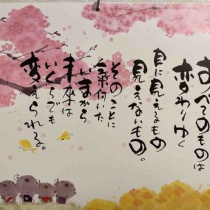 すべてのものは
変わりゆく
目に見えるもの
見えないもの。
そのことに
気付いた
いまから
未来は
いくらでも
変えられる。